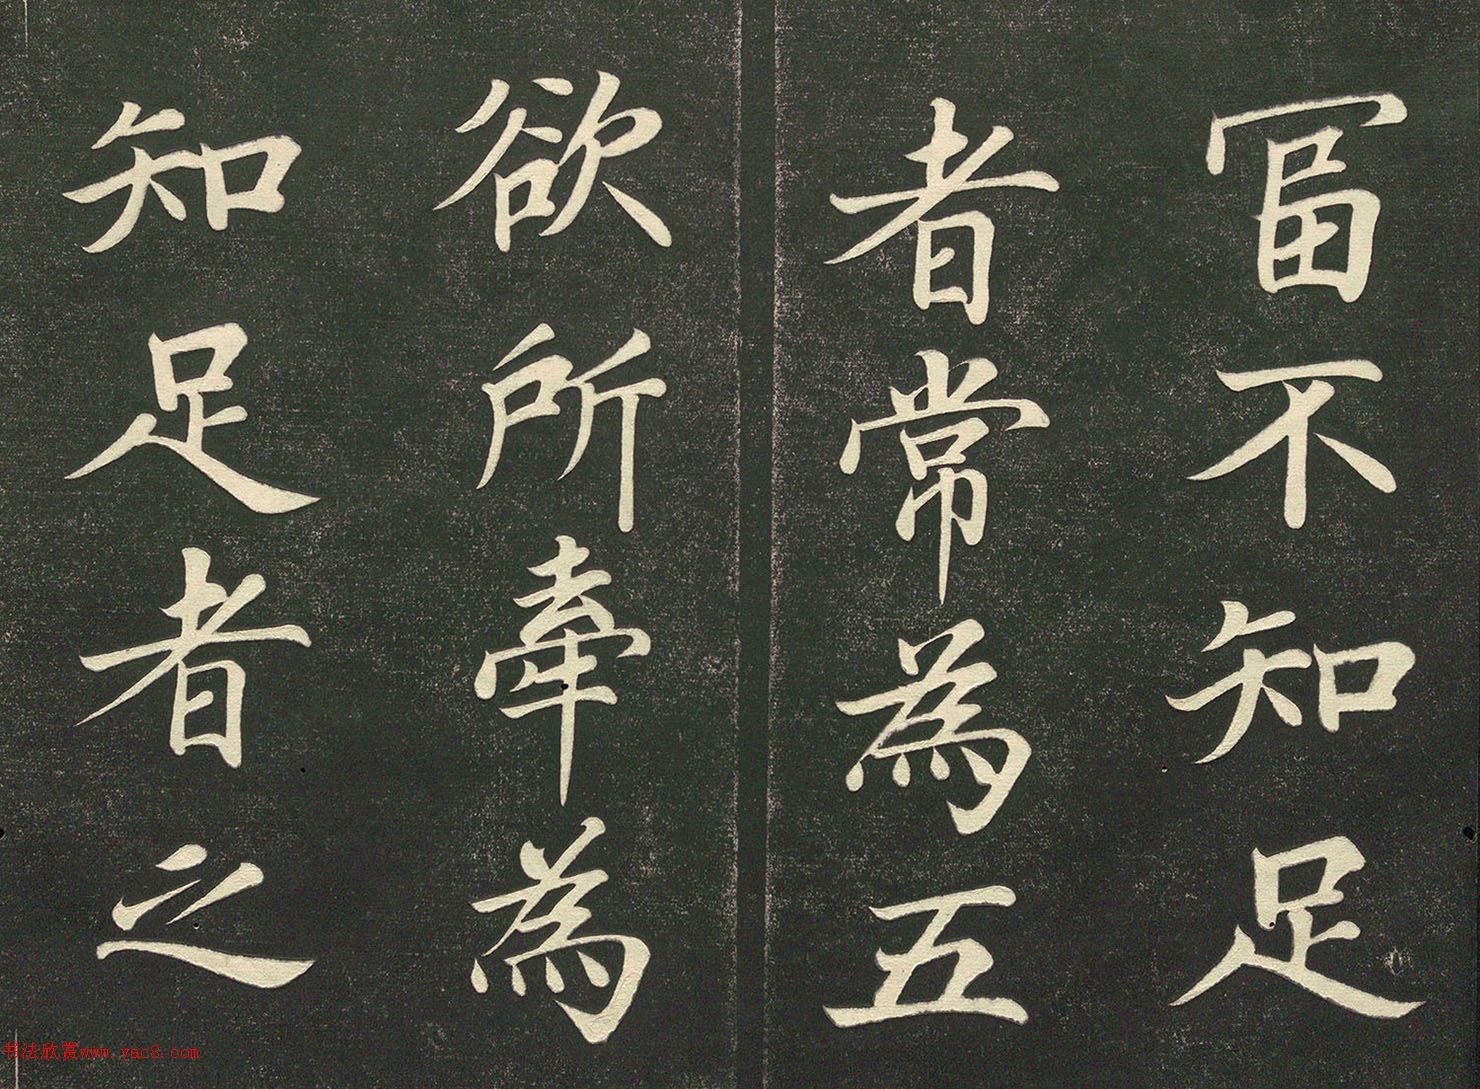 冨不知足
者常為五
欲所牽為
知足者之
书法欣赏www.yac8.com